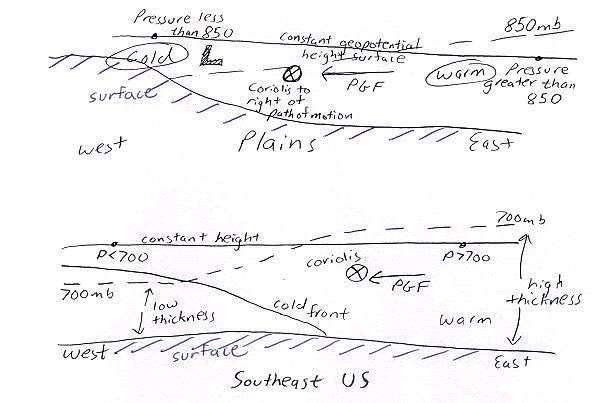 Pressure less
than 850
850mb
constant geopotential
height surface
Cold
PGF
warm
Pressure
greater than
850
surface
Coriolis to
right of
path of motion
West
Plains
East
700mb
constant height
P<700
P>700
coriolis
PGF
high
thickness
700mb
low
thickness
cold
front
warm
West
surface
East
Southeast US